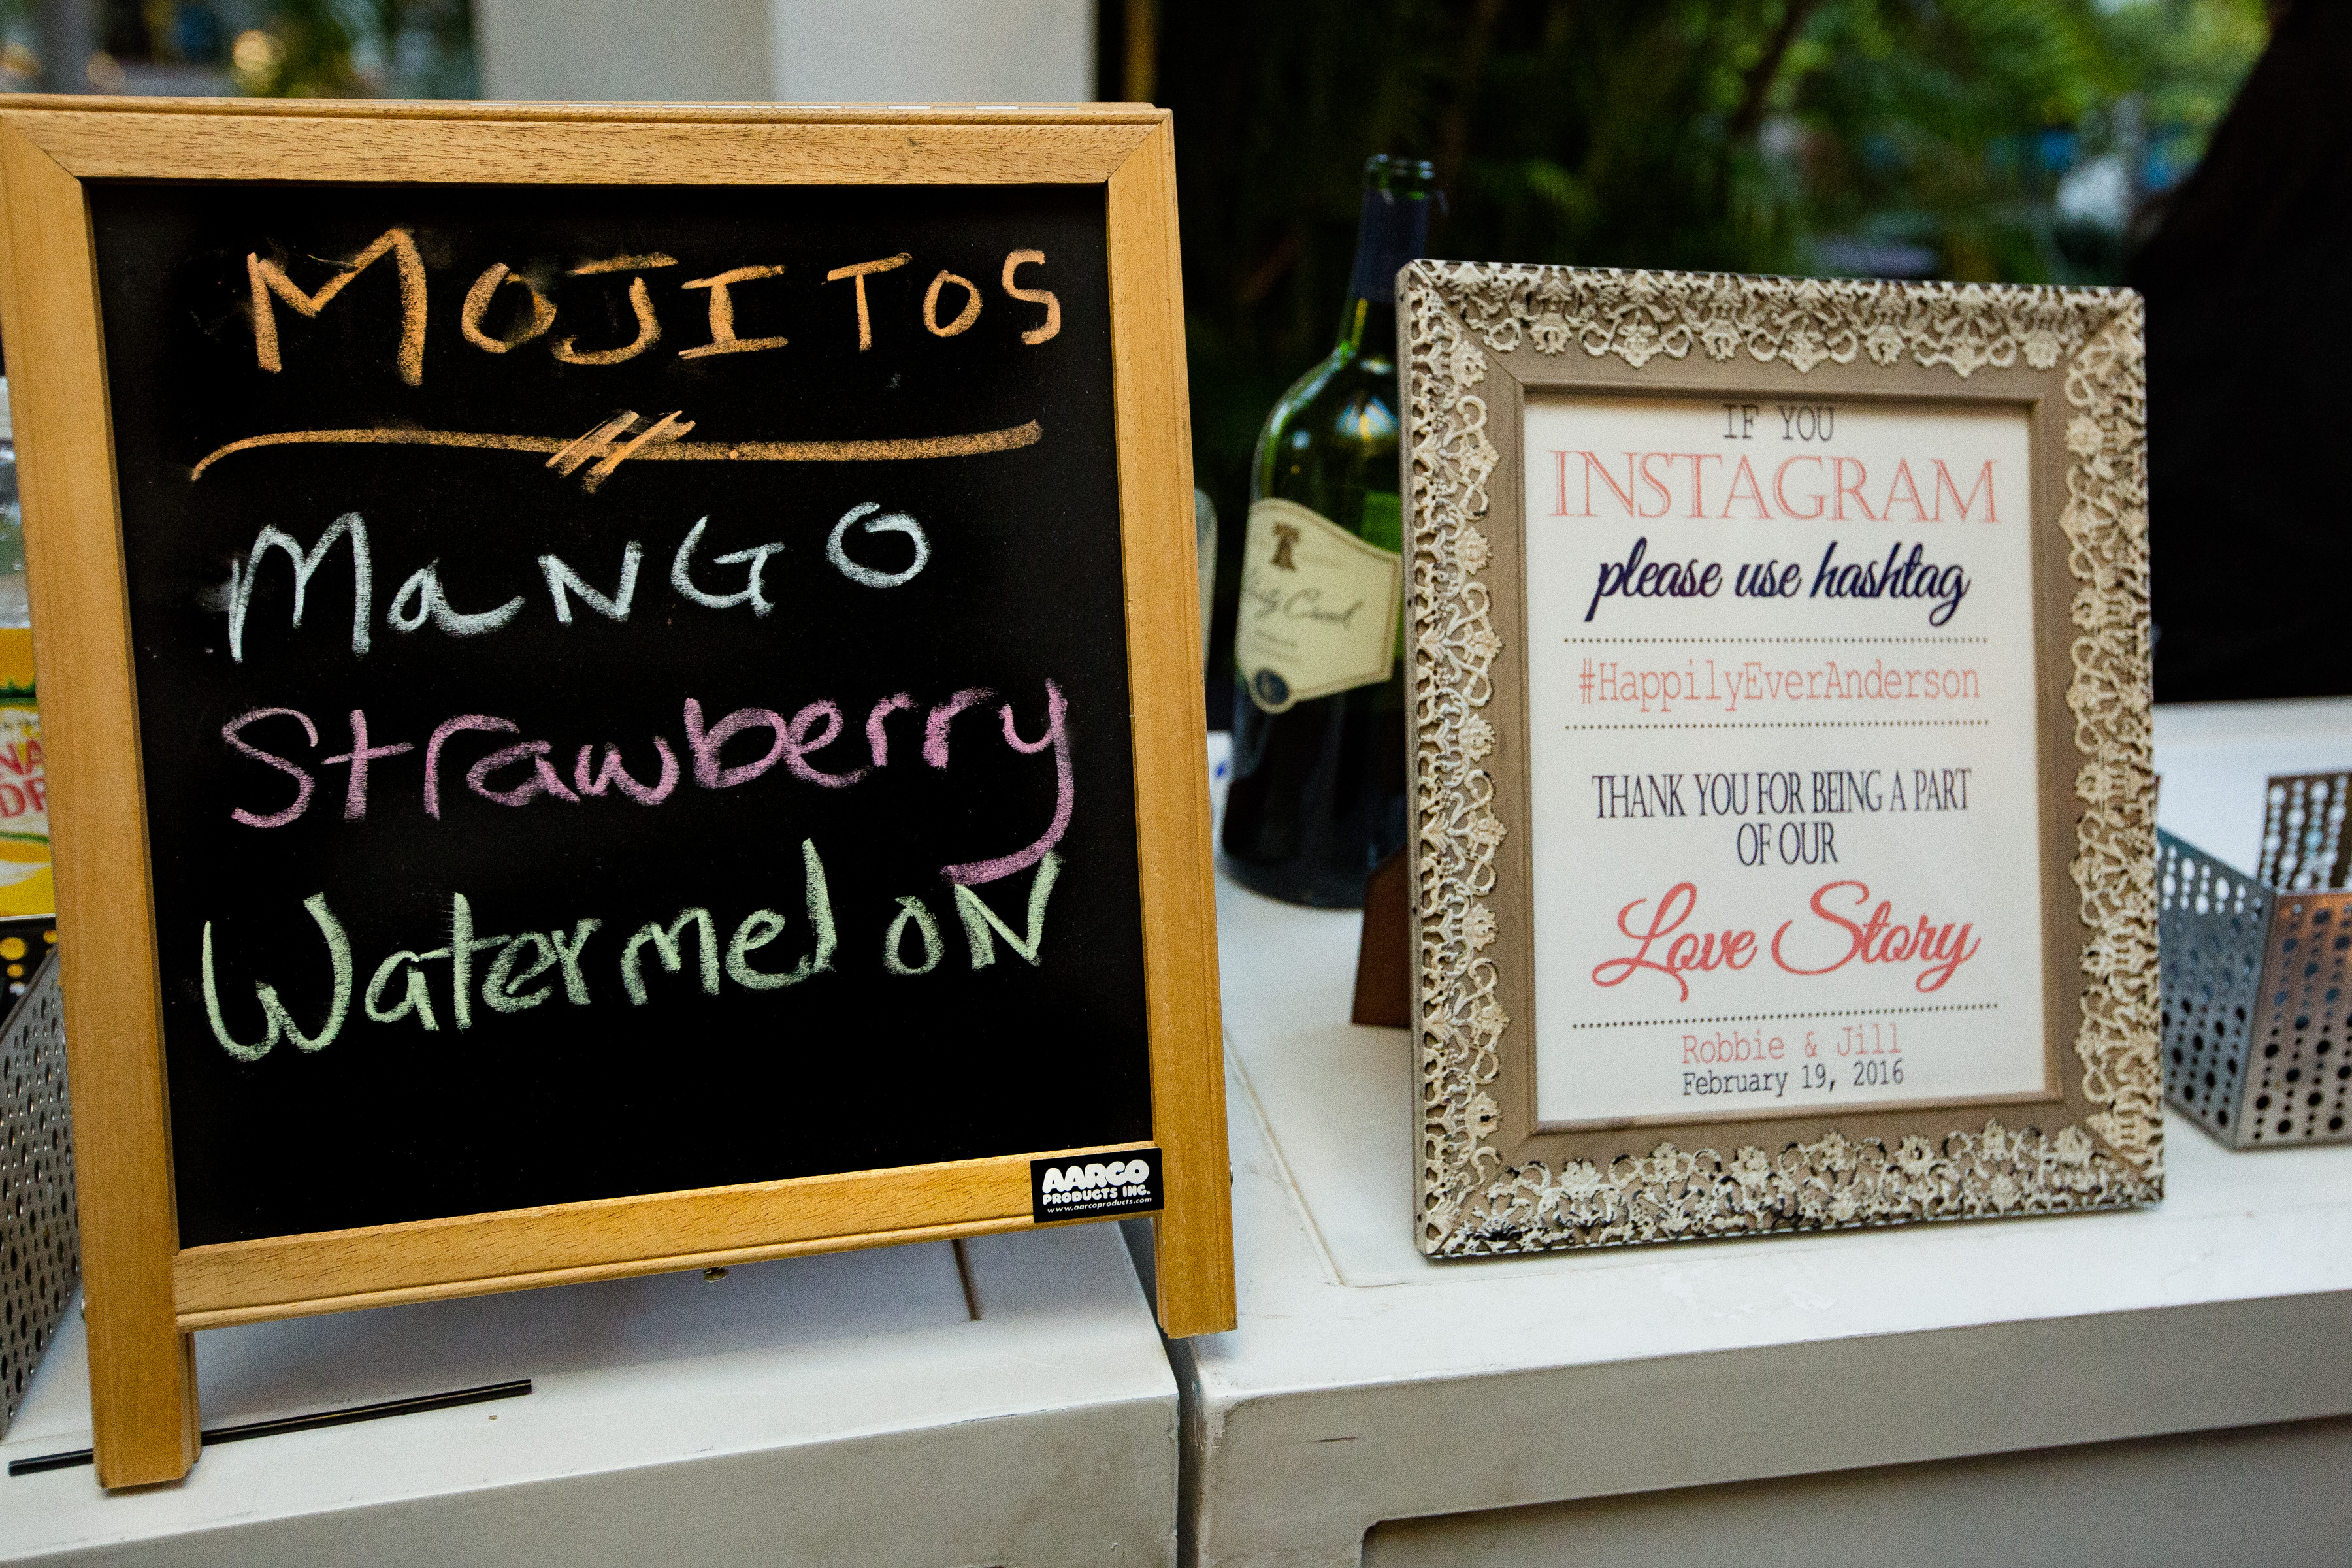 MOJITOS
MaNGO
Strawberry
WatermeloN
AARCO
PRODUCTS INC.
www.aarcoproducts.com
Creek
IF YOU
INSTAGRAM
please use hashtag
#HappilyEverAnderson
THANK YOU FOR BEING A PART
OF OUR
Love Story
Robbie & Jill
February 19, 2016